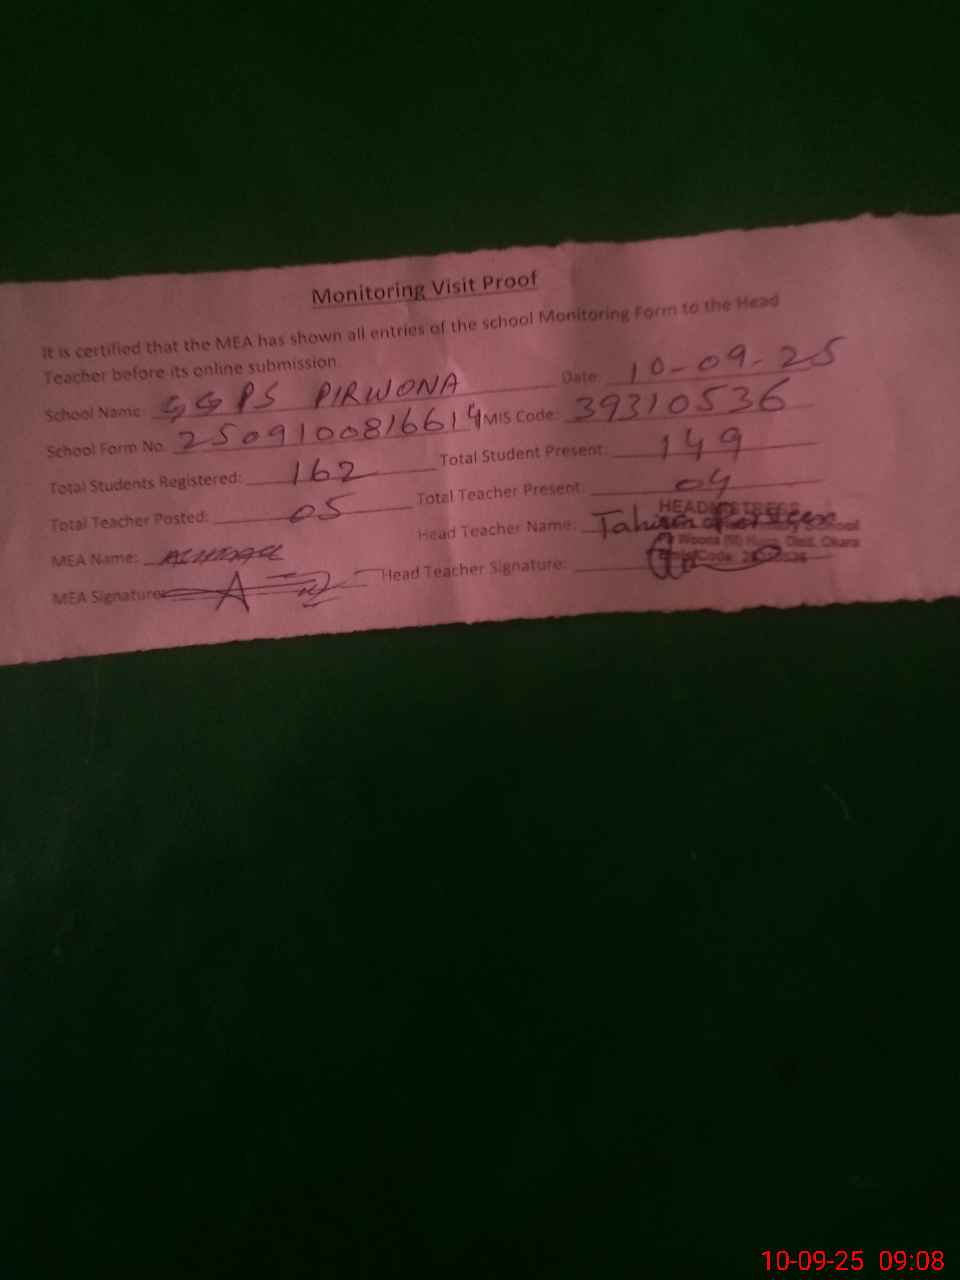 Monitoring Visit Proof
It is certified that the MEA has shown all entries of the school Monitoring Form to the Head
Teacher before its online submission
School Name: GGPS PIRWONA Date: 10-09-25
School Form No. 2509100816614 MIS Code: 39310536
Total Students Registered: 162 Total Student Present: 149
Total Teacher Posted: 05 Total Teacher Present: 04
MEA Name: Head Teacher Name: Tahira
HEADMISTRESS
School
Distt. Okara
MEA Signature: Head Teacher Signature:
Code:
10-09-25 09:08